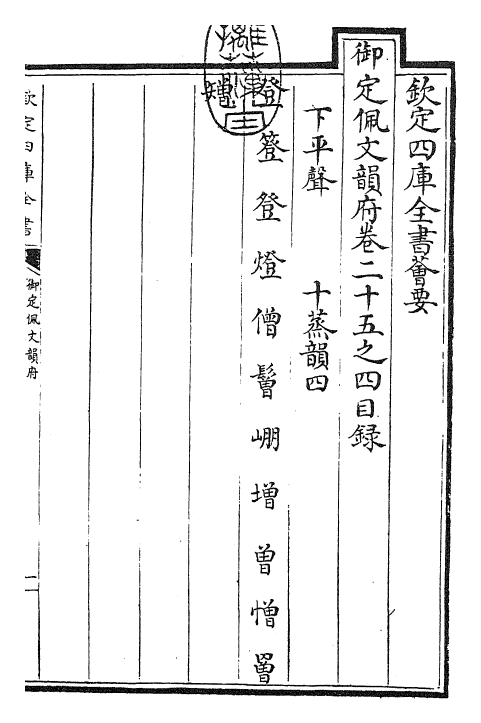 欽定四庫全書薈要
御定佩文韻府卷二十五之四目録
下平聲 十蒸韻四
登 簦 豋 燈 僧 鬙 𡹔 増 曽 憎 罾
矰
欽定四庫全書 御定佩文韻府